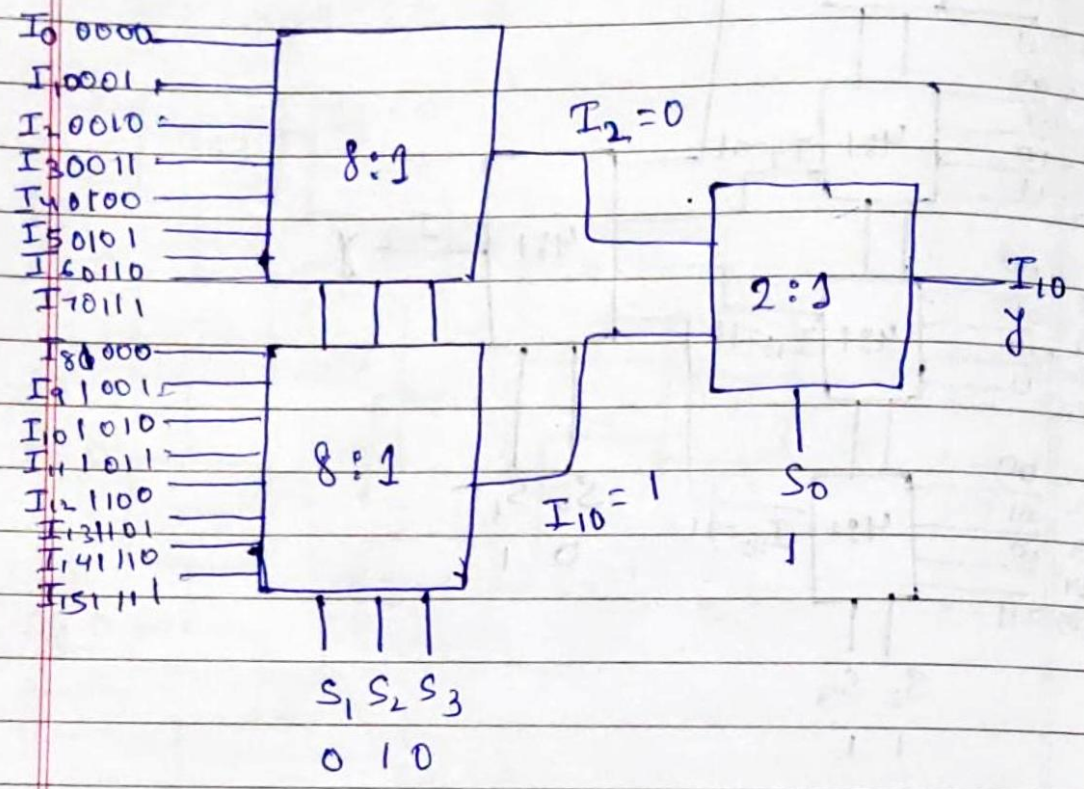 I0 0000
I1 0001
I2 0010
I3 0011
I4 0100
I5 0101
I6 0110
I7 0111
8:1
I2 = 0
2:1
I10
y
I8 1000
I9 1001
I10 1010
I11 1011
I12 1100
I13 1101
I14 1110
I15 1111
8:1
I10 = 1
S0
1
S1 S2 S3
0 1 0